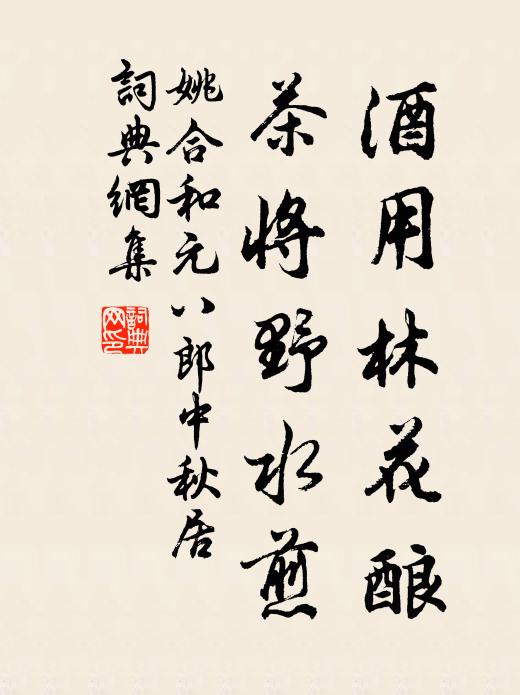 酒用林花酿
茶将野水煎
姚合和元八郎中秋居
詞典網集
詞典網印